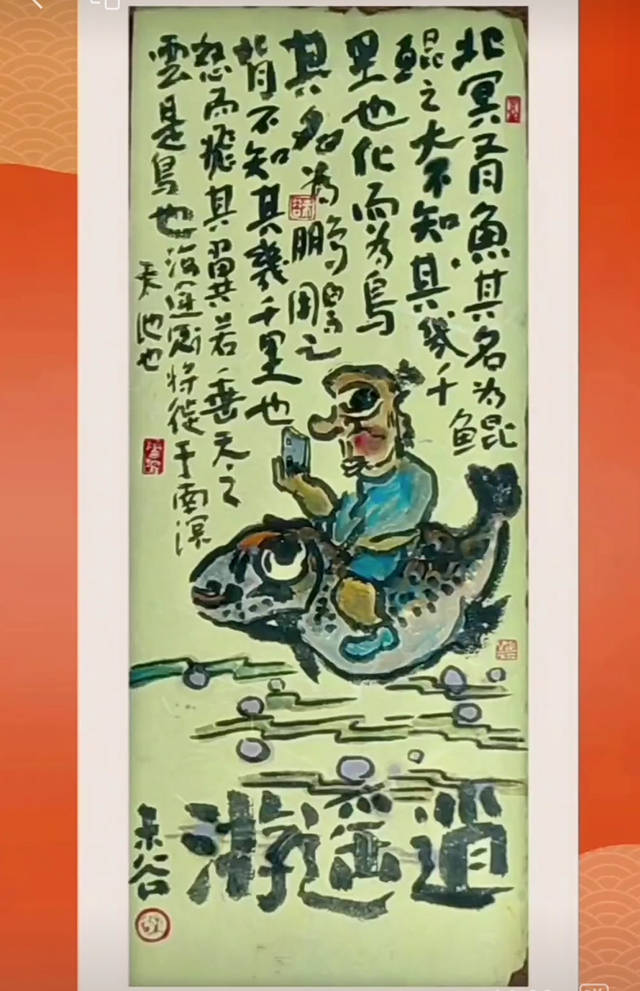 北冥有魚其名為鯤
鯤之大不知其幾千
里也化而為鳥
其名為鵬鵬之
背不知其幾千里也
怒而飛其翼若垂天之
雲是鳥也海運則將徙于南溟
天池也
逍遥游
谷